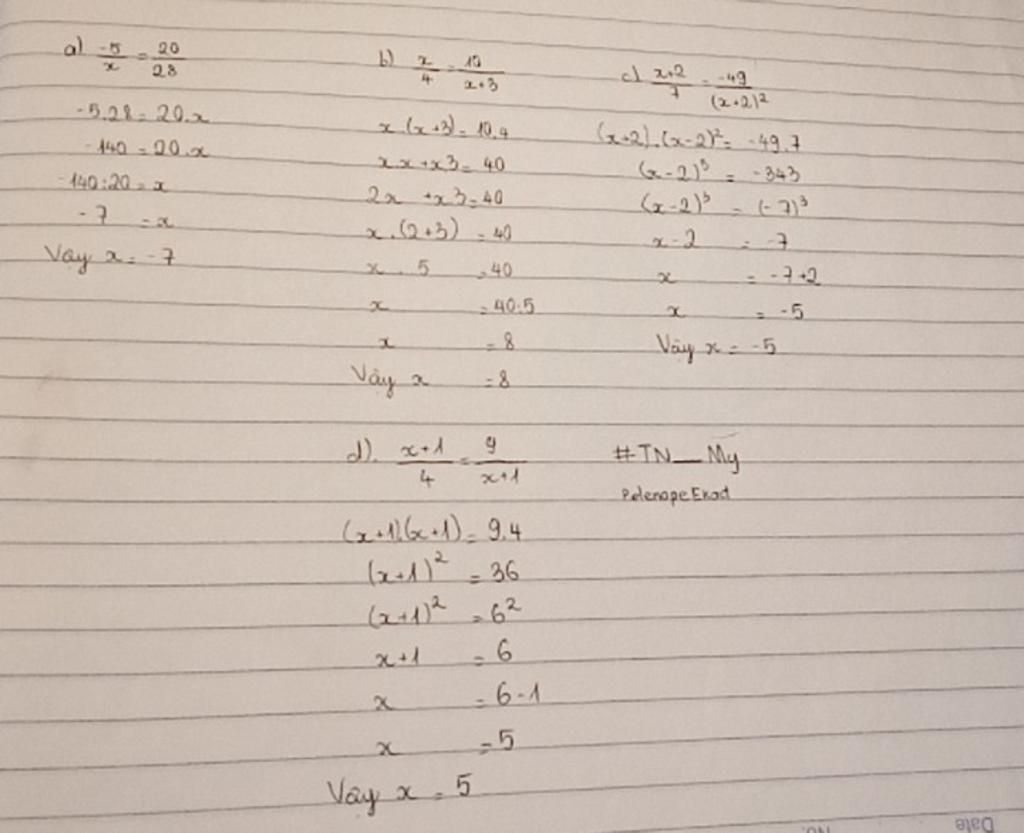 a) -5/x = 20/28
-5.28 = 20.x
-140 = 20.x
-140:20 = x
-7 = x
Vậy x = -7
b) x/4 = 10/x+3
x.(x+3) = 10.4
x.x+x3 = 40
2x +x3 = 40
x.(2+3) = 40
x . 5 = 40
x = 40:5
x = 8
Vậy x = 8
c) x+2/7 = -49/(x+2)²
(x+2).(x-2)² = -49.7
(x-2)³ = -343
(x-2)³ = (-7)³
x-2 = -7
x = -7+2
x = -5
Vây x = -5
d). x+1/4 = 9/x+1
(x+1).(x+1) = 9.4
(x+1)² = 36
(x+1)² = 6²
x+1 = 6
x = 6-1
x = 5
Vây x = 5
#TN__My
No.
Date